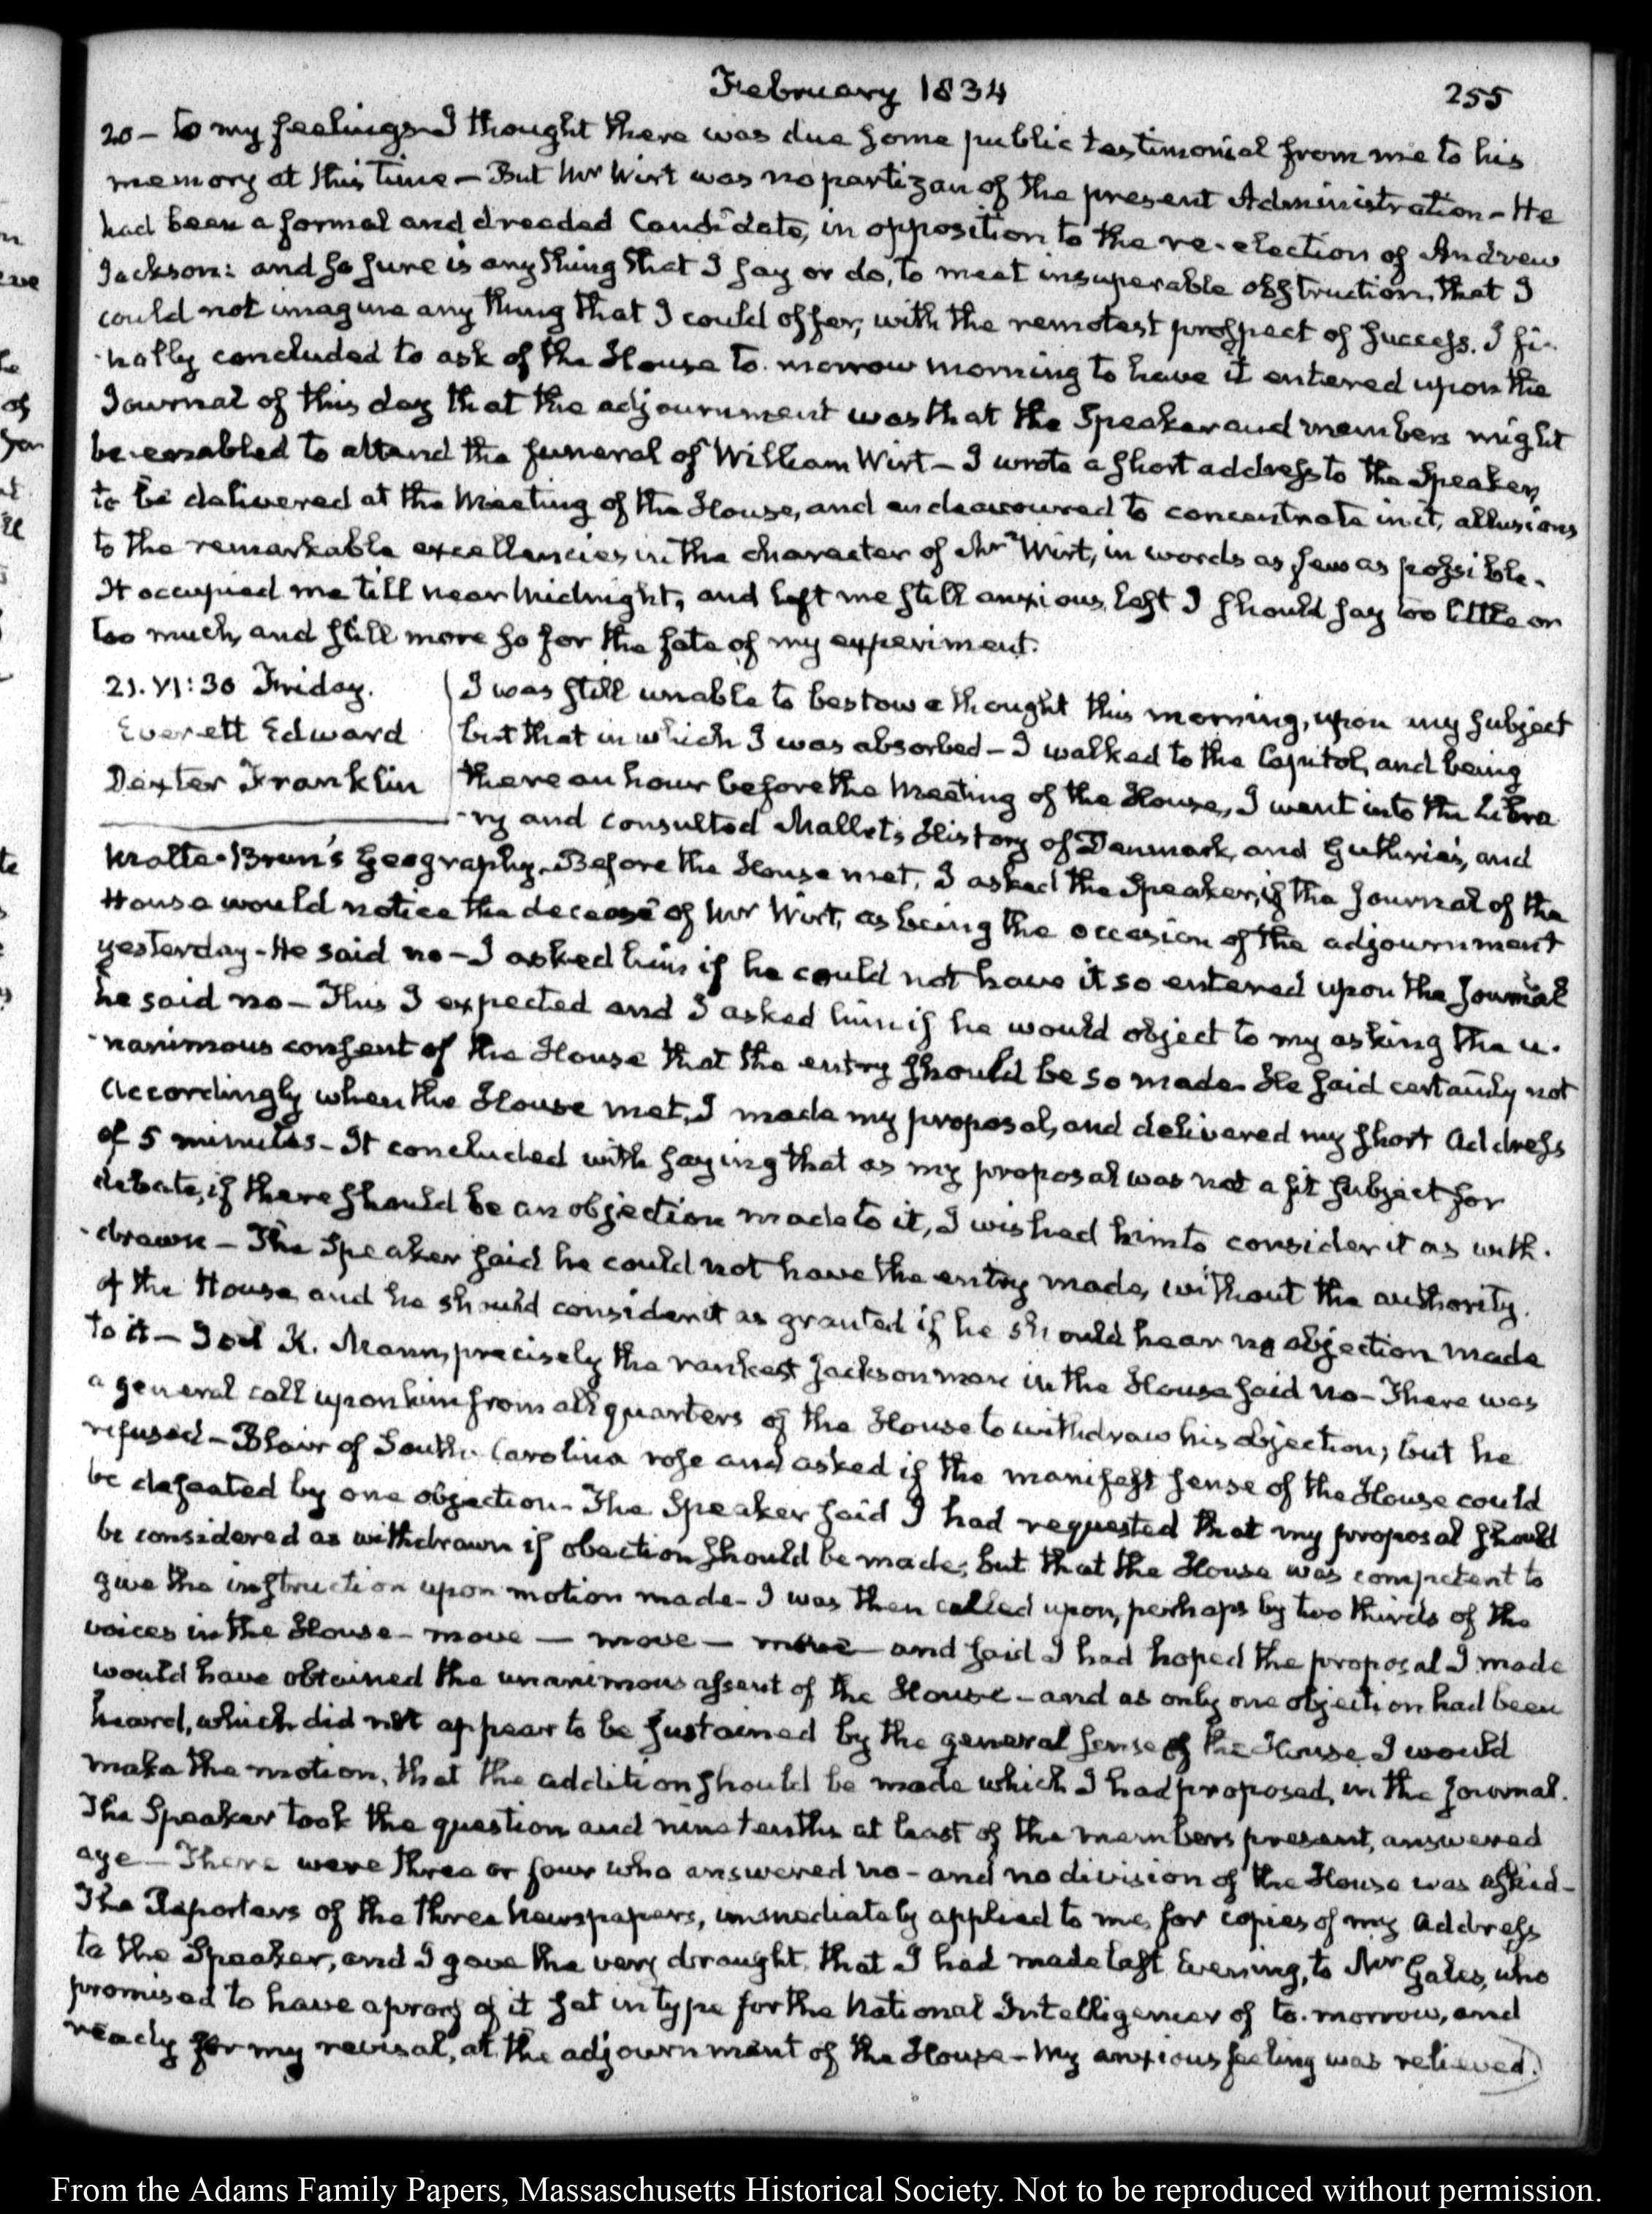 February 1834
255
20 – to my feelings I thought there was due some public testimonial from me to his
memory at this time – But Mr Wirt was no partizan of the present Administration – He
had been a formal and dreaded Candidate, in opposition to the re-election of Andrew
Jackson: and so sure is any thing that I say or do, to meet insuperable obstruction, that I
could not imagine any thing that I could offer, with the remotest prospect of success. I fi-
-nally concluded to ask of the House to-morrow morning to have it entered upon the
Journal of this day that the adjournment was that the Speaker and members might
be enabled to attend the funeral of William Wirt – I wrote a short address to the Speaker,
to be delivered at the Meeting of the House, and endeavoured to concentrate in it, allusions
to the remarkable excellencies in the character of Mr Wirt, in words as few as possible.
It occupied me till near Midnight, and left me still anxious lest I should say too little or
too much, and still more so for the fate of my experiment.
21. VI:30 Friday.
Everett Edward
Dexter Franklin
I was still unable to bestow a thought this morning, upon my subject
but that in which I was absorbed – I walked to the Capitol, and being
there an hour before the Meeting of the House, I went into the Libra
-ry and consulted Mallet's History of Denmark, and Guthrie's, and
Malte-Brun's Geography. Before the House met, I asked the Speaker, if the Journal of the
House would notice the decease of Mr Wirt, as being the occasion of the adjournment
yesterday – He said no – I asked him if he could not have it so entered upon the Journal
he said no – This I expected and I asked him if he would object to my asking the u-
-nanimous consent of the House that the entry should be so made. He said certainly not
Accordingly when the House met, I made my proposal, and delivered my short Address
of 5 minutes – It concluded with saying that as my proposal was not a fit subject for
debate, if there should be an objection made to it, I wished him to consider it as with-
-drawn – The Speaker said he could not have the entry made, without the authority
of the House, and he should consider it as granted if he should hear no objection made
to it – Joel K. Mann, precisely the rankest Jackson man in the House said no – There was
a general call upon him from all quarters of the House to withdraw his objection; but he
refused – Blair of South-Carolina rose and asked if the manifest sense of the House could
be defeated by one objection – The Speaker said I had requested that my proposal should
be considered as withdrawn if obection should be made; but that the House was competent to
give the instruction upon motion made – I was then called upon, perhaps by two thirds of the
voices in the House – move – move – move – and said I had hoped the proposal I made
would have obtained the unanimous assent of the House – and as only one objection had been
heard, which did not appear to be sustained by the general sense of the House I would
make the motion, that the addition should be made which I had proposed, in the Journal.
The Speaker took the question and nine tenths at least of the members present, answered
aye – There were three or four who answered no – and no division of the House was asked –
The Reporters of the three Newspapers, immediately applied to me, for copies of my Address
to the Speaker, and I gave the very draught, that I had made last Evening, to Mr Gales, who
promised to have a proof of it set in type for the National Intelligencer of to-morrow, and
ready for my revisal, at the adjournment of the House – My anxious feeling was relieved.
From the Adams Family Papers, Massachusetts Historical Society. Not to be reproduced without permission.